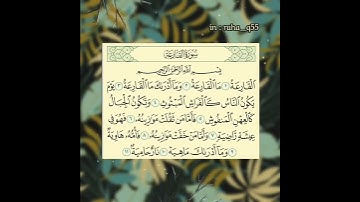 in : raha_q55
سُورَةُ القَارِعَةِ
بِسْمِ اللَّهِ الرَّحْمَٰنِ الرَّحِيمِ
الْقَارِعَةُ ١ مَا الْقَارِعَةُ ٢ وَمَا أَدْرَاكَ مَا الْقَارِعَةُ ٣ يَوْمَ
يَكُونُ النَّاسُ كَالْفَرَاشِ الْمَبْثُوثِ ٤ وَتَكُونُ الْجِبَالُ
كَالْعِهْنِ الْمَنفُوشِ ٥ فَأَمَّا مَن ثَقُلَتْ مَوَازِينُهُ ٦ فَهُوَ فِي
عِيشَةٍ رَّاضِيَةٍ ٧ وَأَمَّا مَنْ خَفَّتْ مَوَازِينُهُ ٨ فَأُمُّهُ هَاوِيَةٌ
٩ وَمَا أَدْرَاكَ مَا هِيَهْ ١٠ نَارٌ حَامِيَةٌ ١١